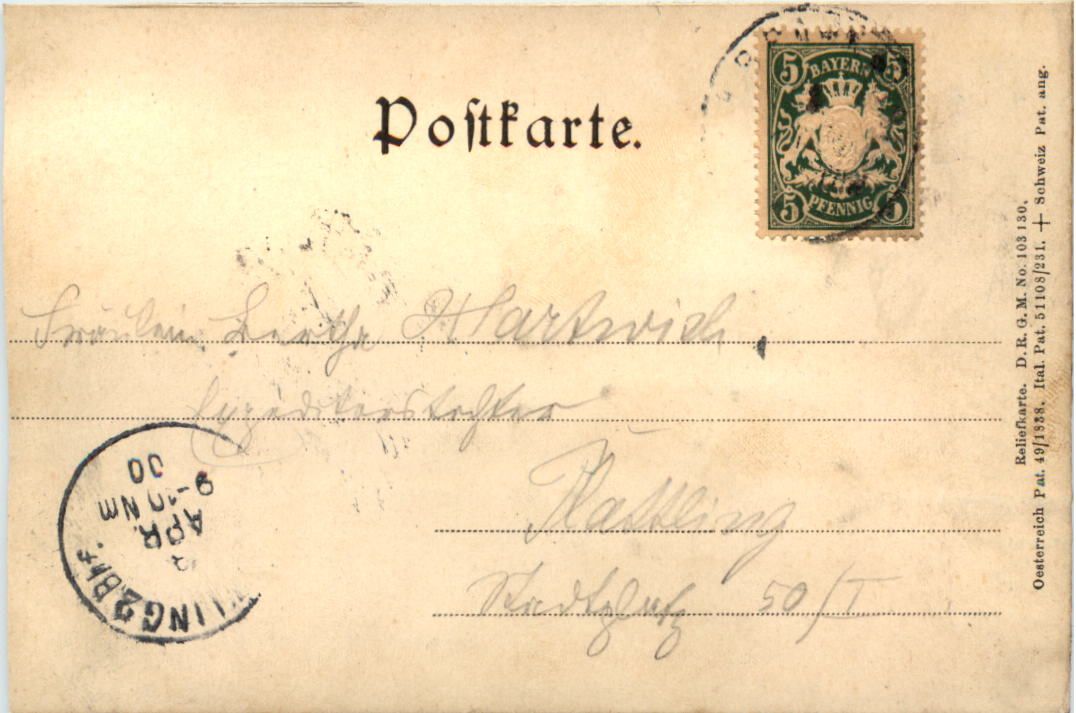 Postkarte.
5 BAYERN 5
5 PFENNIG 5
Fräulein Bertha Hartwich
Expeditorstochter
Plattling
Stadtplatz 50/I
LING 2 Bhf.
APR.
9-10 NM
00
Reliefkarte. D. R. G. M. No. 103130.
Oesterreich Pat. 49/1838. Ital. Pat. 51108/231. + Schweiz Pat. ang.